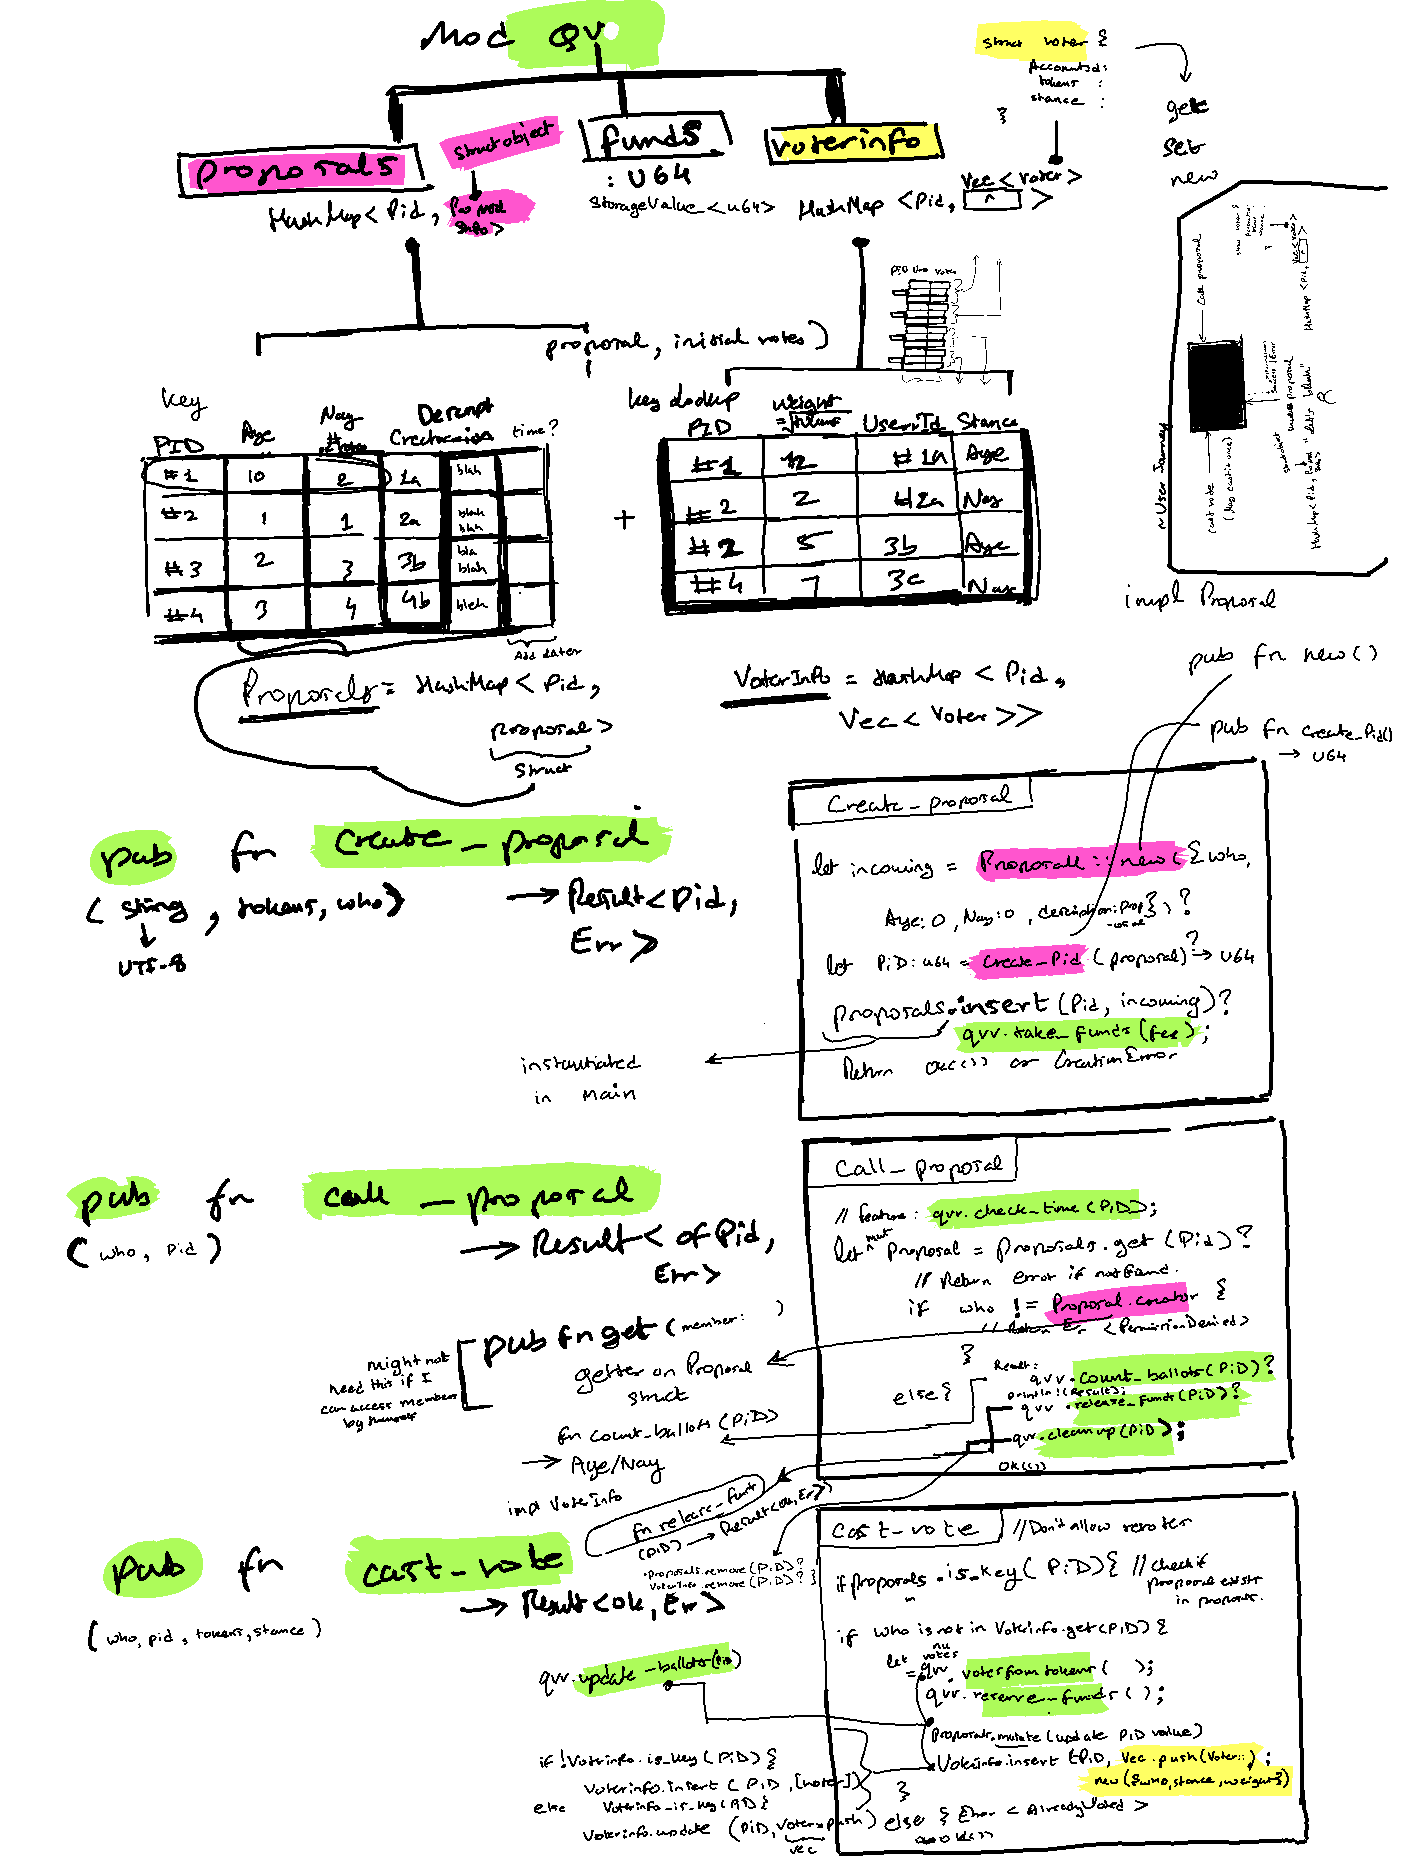 Mod QV
struct voter {
AccountId:
tokens :
stance :
}
get
set
new
proposals
struct object
funds
: U64
voterinfo
HashMap < Pid,
Info>
StorageValue <u64>
HashMap <Pid,
Vec< Voter>
>
proposal, initial votes)
key
PID
Aye
Nay
time?
#1
10
2
1a
blah
#2
1
1
2a
blah
blah
#3
2
3
3b
bla
blah
#4
3
4
4b
blah
Add later
+
key lookup
PID
Weight
UserId
Stance
#1
12
#1a
Aye
#2
2
#2a
Nay
#2
5
3b
Aye
#4
7
3c
Nay
Proposals = HashMap < Pid,
proposal >
struct
VoterInfo = HashMap < Pid,
Vec < Voter >>
~ User Journey
call proposal
cast vote
impl Proposal
pub fn new()
pub fn create_Pid()
→ U64
pub fn create_proposal
( string, tokens, who)
→ Result< Pid,
Err >
UTF-8
Create_proposal
let incoming = Proposal :: new ( { who,
Aye: 0, Nay: 0, description: prop }) ?
let PiD: u64 = Create_Pid ( proposal) ? → U64
proposals.insert ( Pid, incoming)?
qvv.take_funds (fee);
Return Ok(()) or CreationError
instantiated
in main
pub fn call_proposal
( who, pid )
→ Result< of Pid,
Err >
Call_proposal
// feature: qvv.check_time (PiD);
let mut Proposal = Proposals.get (Pid) ?
// Return error if not found.
if who != Proposal.creator {
// Return Err <PermissionDenied>
}
else {
Result:
qvv.count_ballots (PiD)?
println!(Result);
qvv.release_funds (PiD)?
qvv.cleanup (PiD);
OK(())
might not
need this if I
can access members
by themself
pub fn get (member: )
getter on Proposal
struct
fn count_ballots (PiD)
→ Aye/Nay
impl VoterInfo
fn release_fund
(PiD) → Result<Ok, Err>
· Proposals.remove (PiD)?
VoterInfo.remove (PiD)? }
pub fn cast_vote
( who, pid, tokens, stance )
→ Result <ok, Err >
cast_vote
// Don't allow revoter
if proposals.is_key( PiD) { // check if
proposal exists
in proposals.
if who is not in VoterInfo.get(PiD) {
let nu
votes
= qvv. votes from tokens ( );
qvv. reserve_funds ( );
Proposals.mutate (update PID value)
VoterInfo.insert (PiD, Vec.push(Voter::) ;
new({who, stance, weight})
}
else { Error < AlreadyVoted >
OK(())
qvv.update_ballots(Pid)
if !VoterInfo.is_key (PiD) {
VoterInfo.insert ( PiD, [voter])
else VoterInfo.is_key(PiD {
VoterInfo.update (PiD, Voter.push)
vec